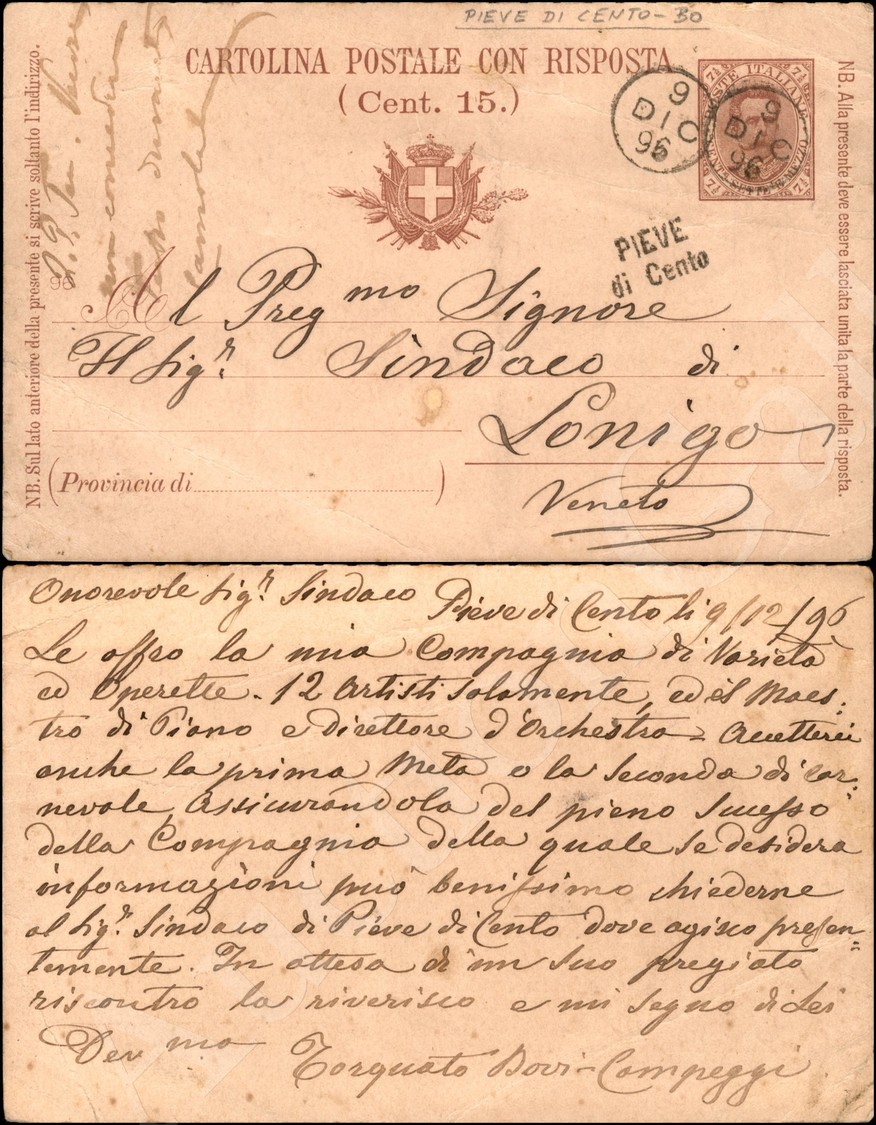 PIEVE DI CENTO-BO
CARTOLINA POSTALE CON RISPOSTA
(Cent. 15.)
NB. Sul lato anteriore della presente si scrive soltanto l'indirizzo.
NB. Alla presente deve essere lasciata unita la parte della risposta.
7½ POSTE ITALIANE 7½
CENT. SETTE E MEZZO
7½ 7½
9
DIC
96
9
DIC
96
PIEVE
di Cento
96
Al Preg mo Signore
Il Sigr. Sindaco di
Lonigo
(Provincia di )
Veneto
Onorevole Sigr. Sindaco
Pieve di Cento li 9/12/96
Le offro la mia Compagnia di Varietà
ed Operette. 12 Artisti solamente, ed il Maes:
tro di Piano e direttore d'Orchestra - Accetterei
anche la prima Metà o la seconda di car:
nevale, assicurandola del pieno sucesso
della Compagnia della quale se desidera
informazioni può benissimo chiederne
al Sigr. Sindaco di Pieve di Cento dove agisco presen=
temente. In attesa di un suo pregiato
riscontro la riverisco e mi segno di Lei
Dev mo
Torquato Bovi-Campeggi